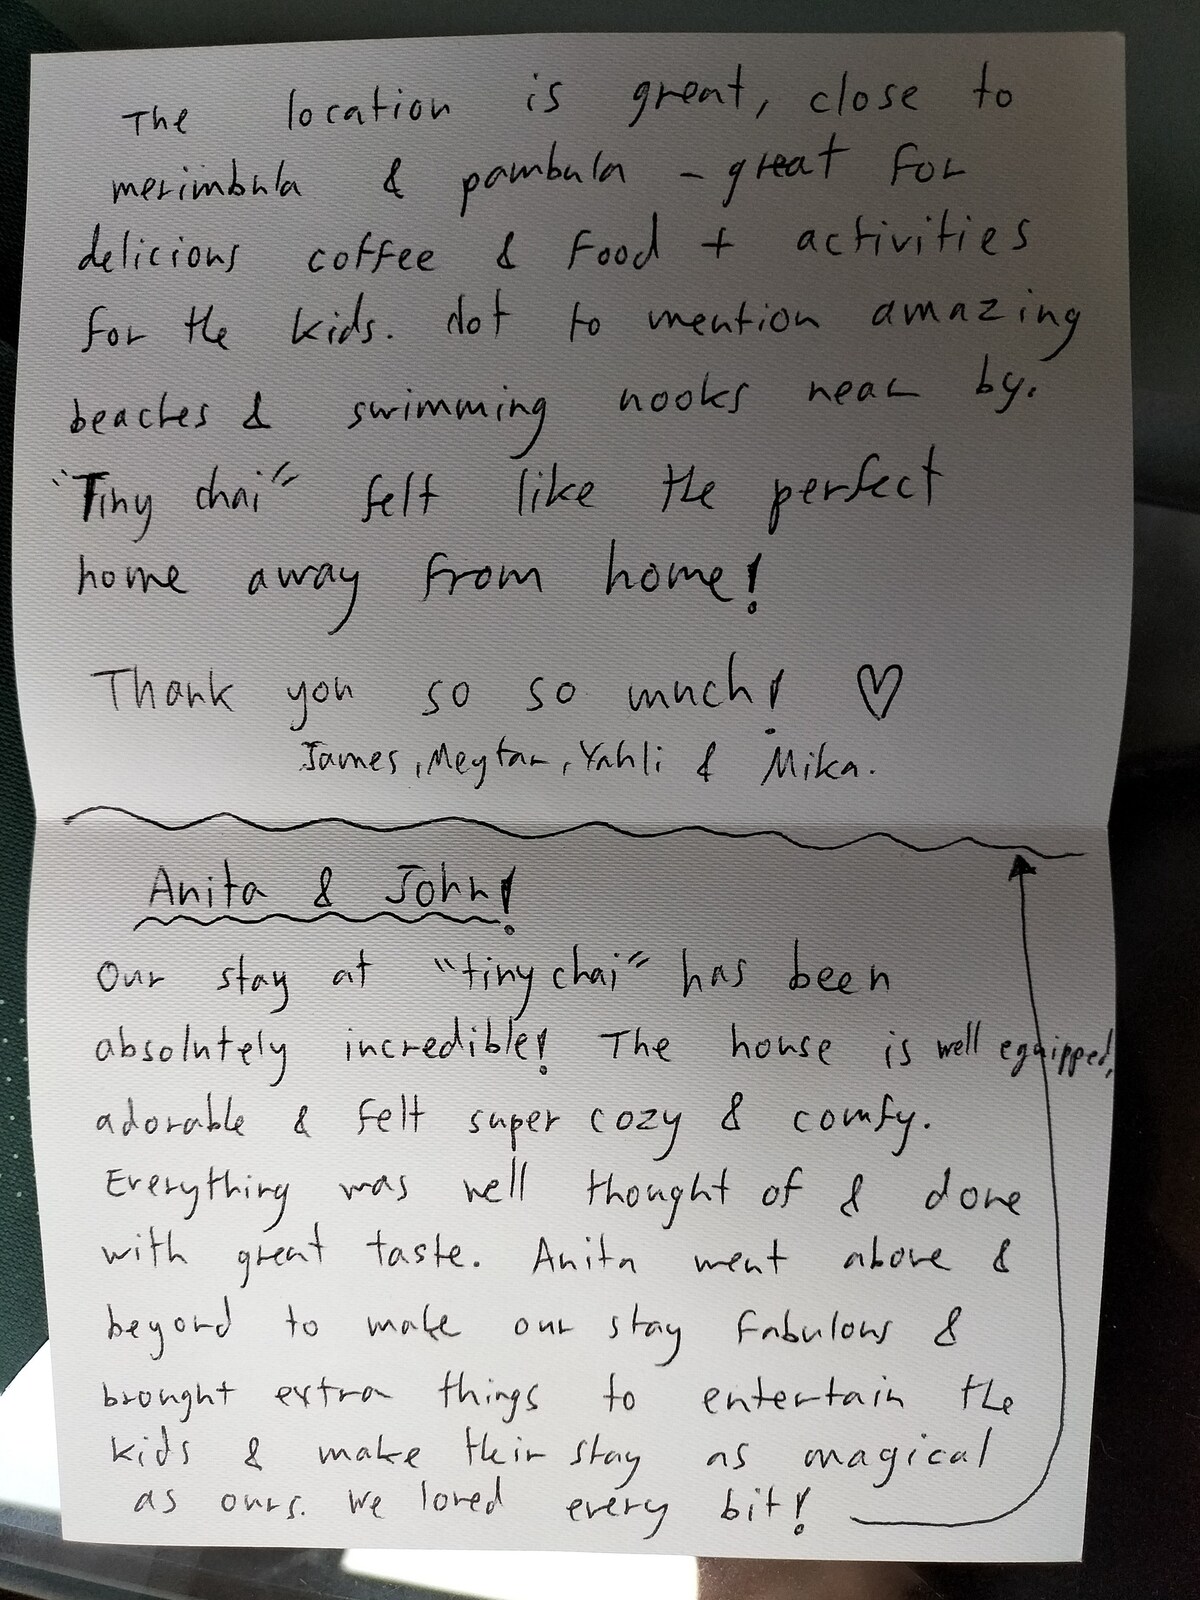 The location is great, close to
merimbula & pambula - great for
delicious coffee & food + activities
for the kids. Not to mention amazing
beaches & swimming nooks near by.
"Tiny chai" felt like the perfect
home away from home!
Thank you so so much! ♡
James, Meytar, Yahli & Mika.
Anita & John!
Our stay at "tiny chai" has been
absolutely incredible! The house is well equipped,
adorable & felt super cozy & comfy.
Everything was well thought of & done
with great taste. Anita went above &
beyond to make our stay fabulous &
brought extra things to entertain the
kids & make their stay as magical
as ours. We loved every bit!